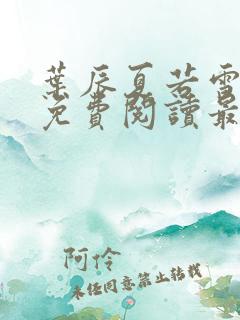 葉辰夏若雪
免費閱讀最
阿伶
未经同意禁止转载